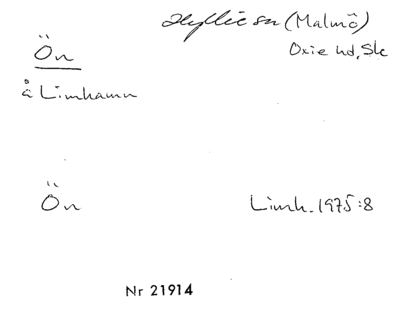 Hyllie sn (Malmö)
Ön
Oxie hd, Sk
å Limhamn
Ön
Limh. 1975:8
Nr 21914